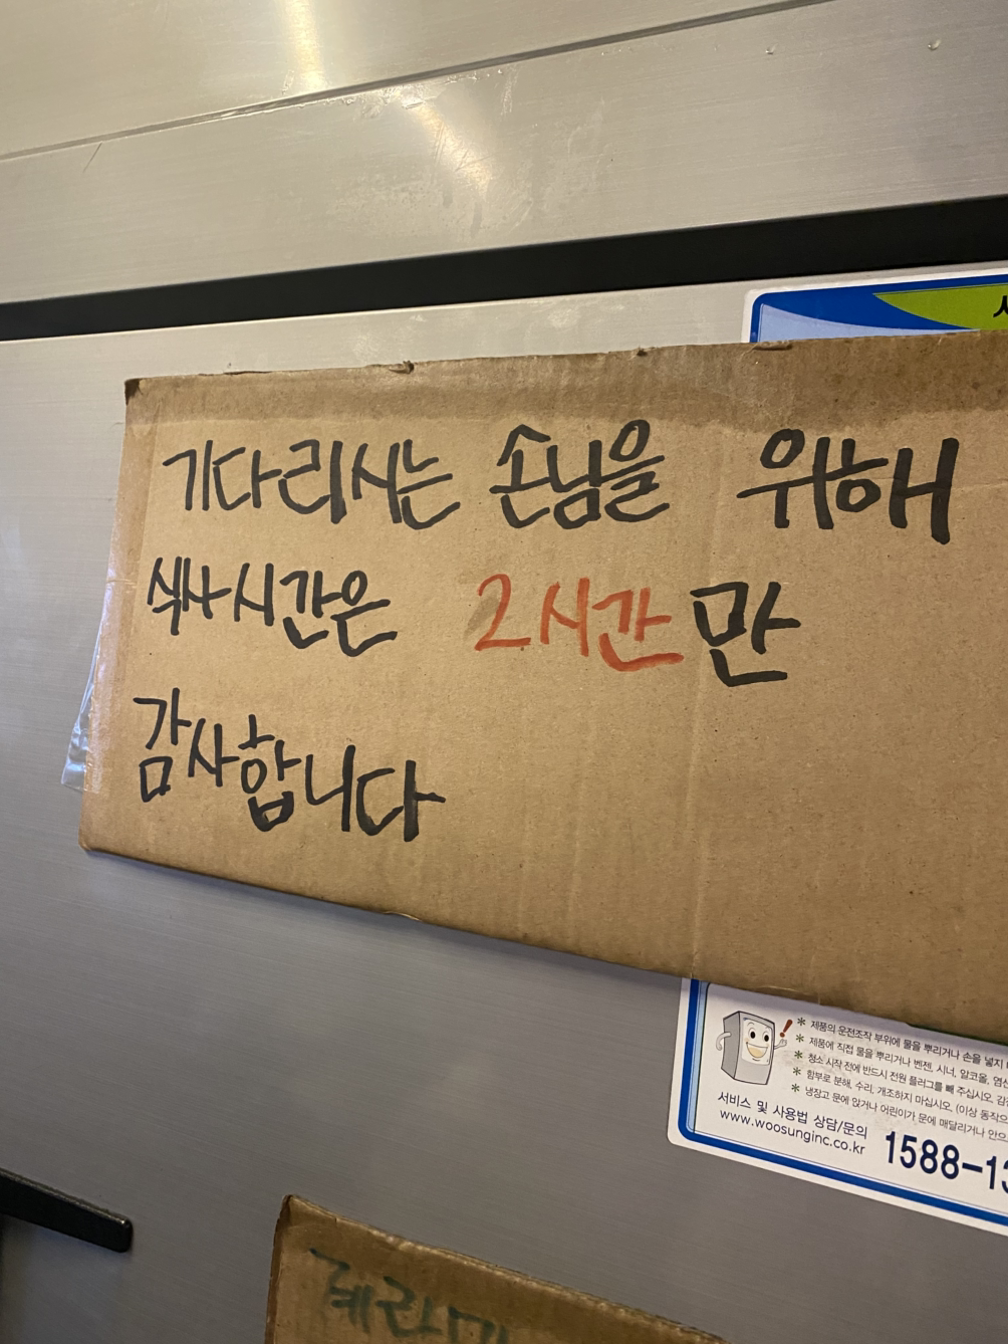 기다리시는 손님을 위해
식사시간은 2시간만
감사합니다
* 제품의 운전조작 부위에 물을 뿌리거나 손을 넣지
* 제품에 직접 물을 뿌리거나 벤젠, 시너, 알코올,
* 청소 시작 전에 반드시 전원 플러그를 빼 주십시오.
* 함부로 분해, 수리, 개조하지 마십시오. (이상 동작으
* 냉장고 문에 앉거나 어린이가 문에 매달리거나
서비스 및 사용법 상담/문의
www.woosunginc.co.kr
1588-13